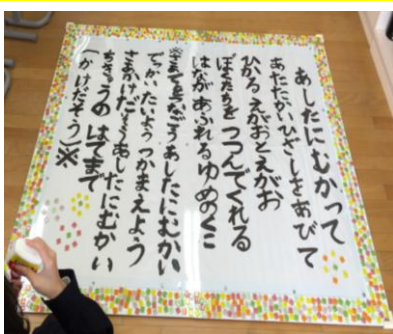 あしたにむかって
あたたかいひざしをあびて
ひかる えがおとえがお
ぼくたちを つつんでくれる
はながあふれるゆめのくに
※さあてをつなごう あしたにむかい
でっかいたいようつかまえよう
さあかけだそうあしたにむかい
ちきゅうの はてまで
(かけだそう)※